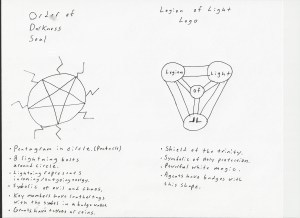 Order of
Darkness
Seal
• Pentagram in circle. (Pentacle)
• 8 lightning bolts
around circle.
• Lightning represents
incoming/outgoing energy.
• Symbolic of evil and chaos.
• Key members have
with the symbol in a
• Grunts have tokens or coins.
Legion of Light
Logo
Legion
Light
of
• Shield of the trinity.
• Symbolic of Holy protection.
• Powerful white magic.
• Agents have badges with
this shape.